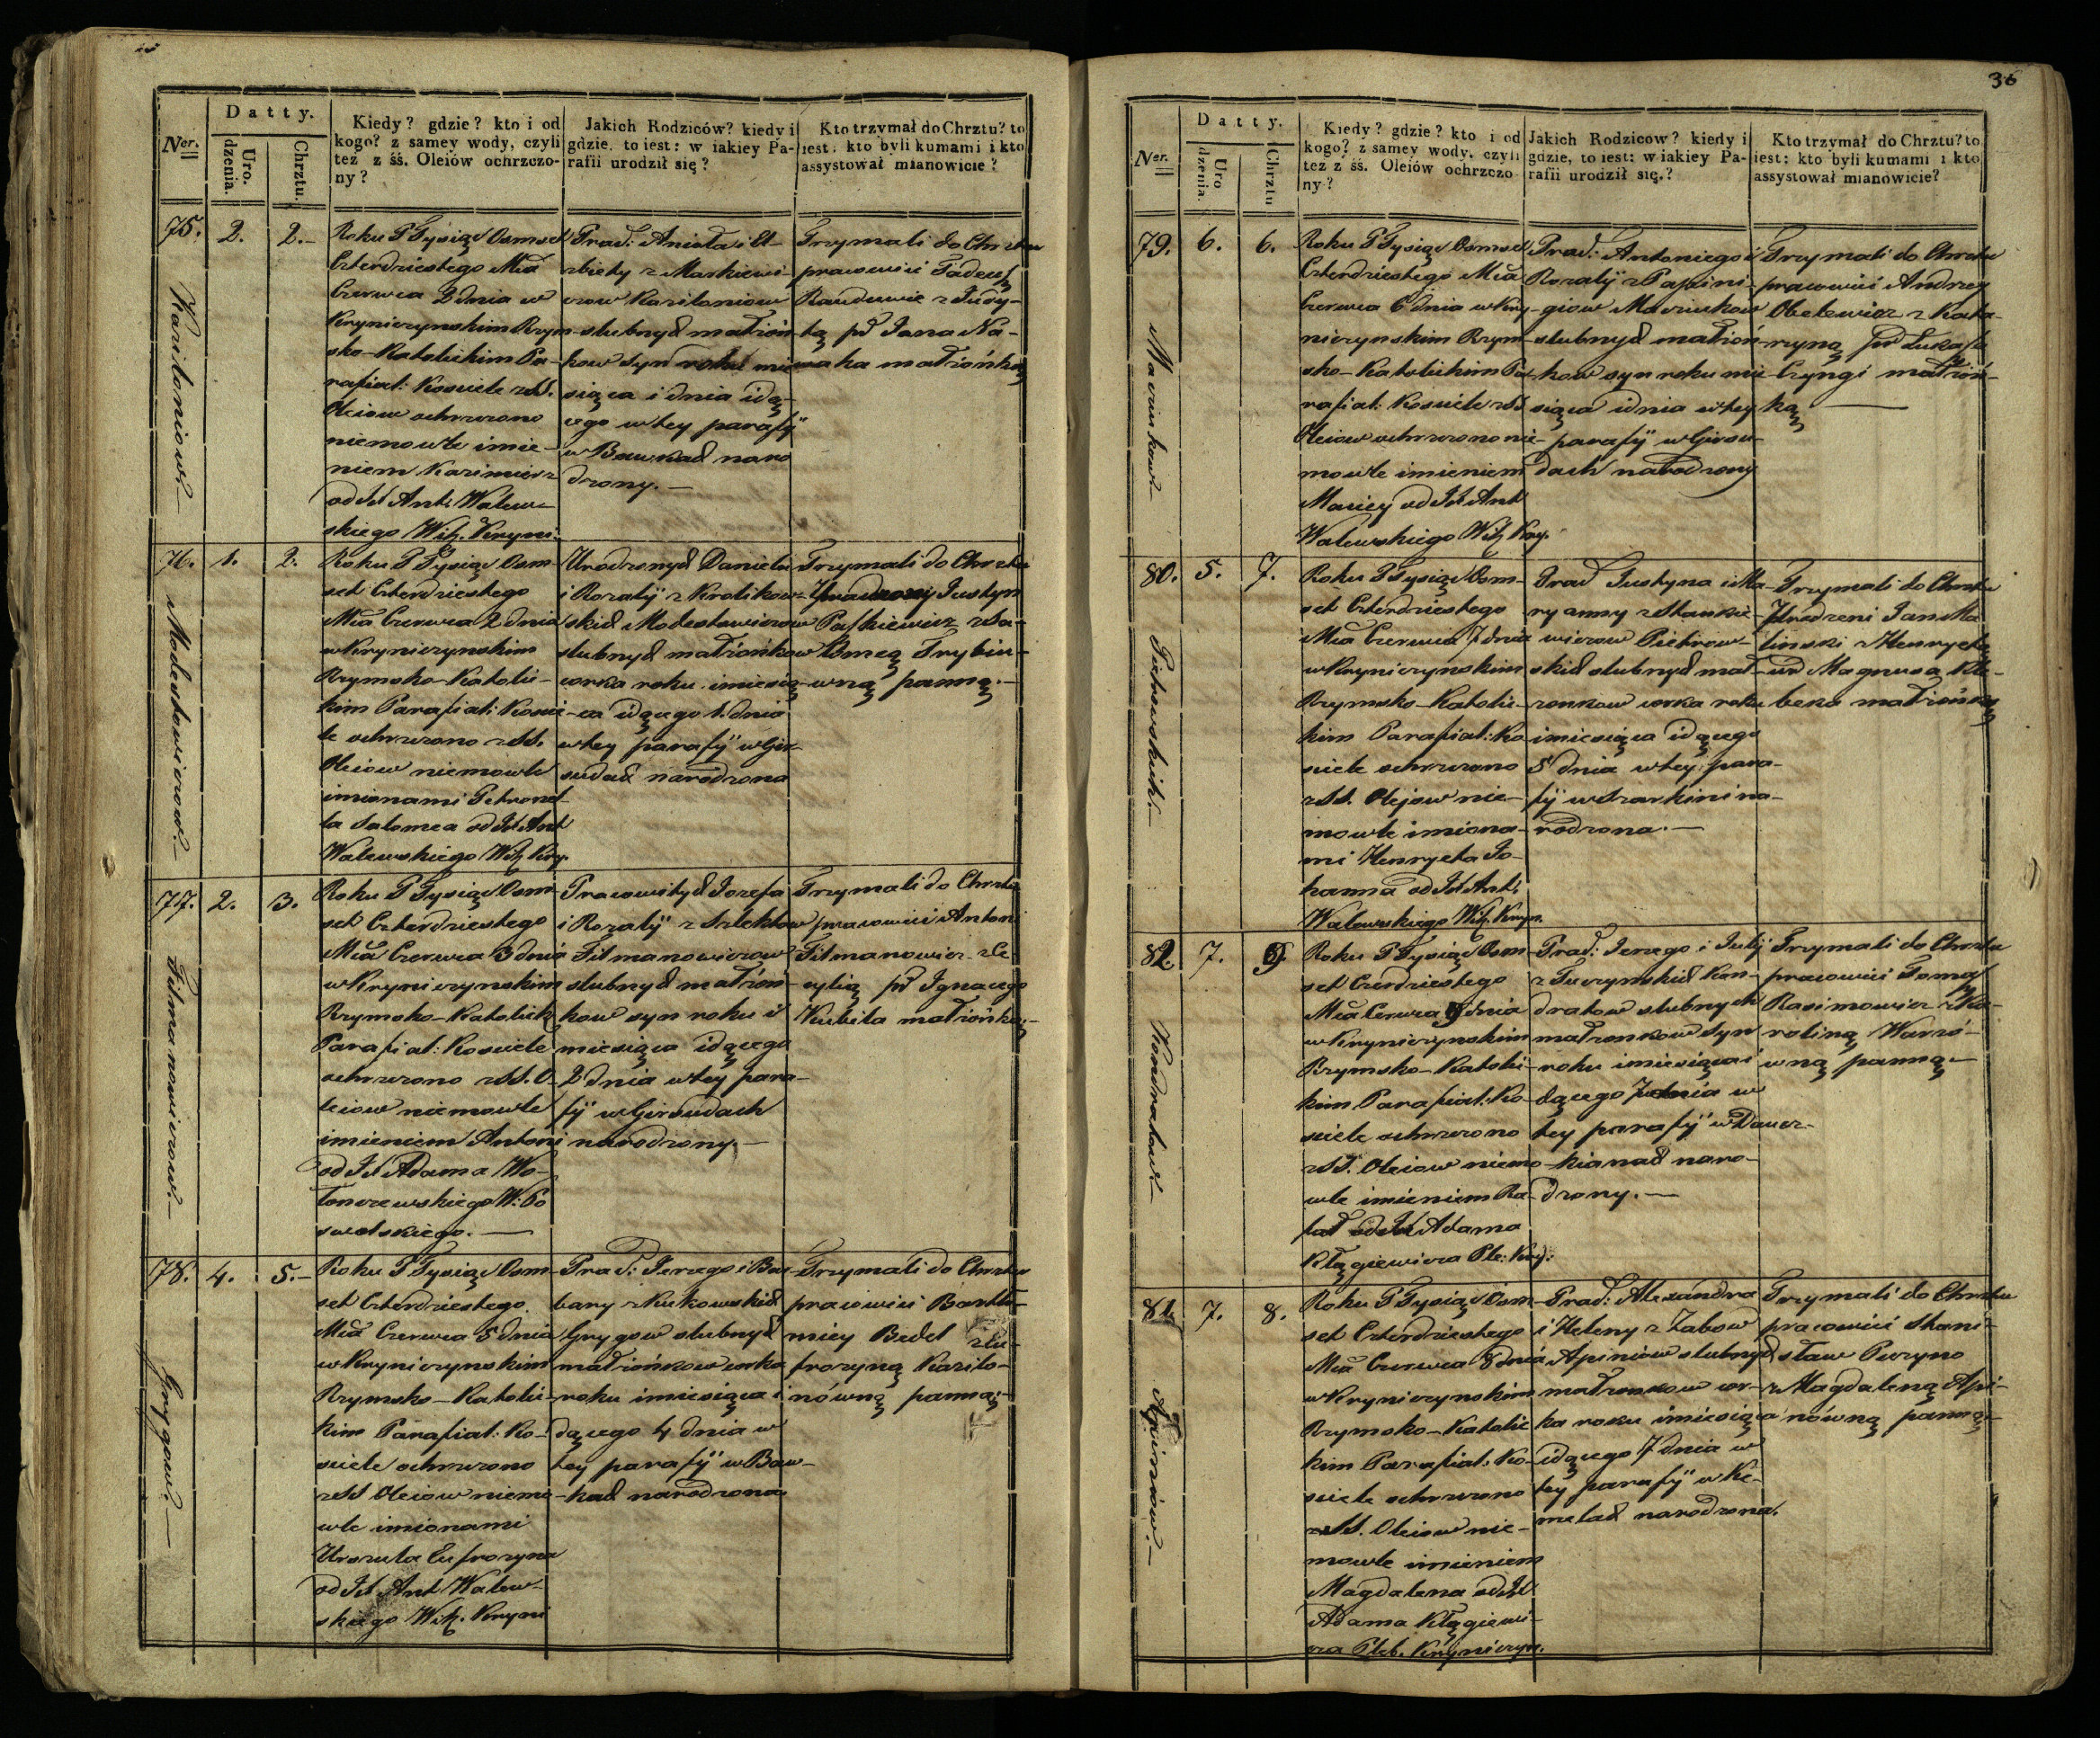 36
Ner.
Datty.
Urodzenia.
Chrztu.
Kiedy? gdzie? kto i od
kogo? z samey wody, czyli
też z śś. Oleiów ochrzczo-
ny?
Jakich Rodziców? kiedy i
gdzie, to iest: w iakiey Pa-
rafii urodził się?
Kto trzymał do Chrztu? to
iest: kto byli kumami i kto
assystował mianowicie?
75. 2. 2.-
Kaziloniow.-
Roku P Tysiąc Osmset
Czterdziestego Mca
Czerwca 2 dnia w
Krynieczynskim Rzym-
sko-Katolickim Pa-
rafial: Kosciele z SS.
Oleiow ochrzczono
niemowle imie-
niem Kazimierz
od JX Ant: Walew-
skiego Wik. Kryni:
Prac: Anioła i El-
zbiety z Markiewi-
czow Kaziloniow
slubnych małżon-
kow syn roku mie-
siąca i dnia idą-
cego w tey parafij
w Bawkach naro
dzony.-
Trzymali do Chrztu
pracowici Tadeusz
Randuwie z Judy-
tą po Jana Na-
maka małżonką
76. 1. 2.
Modestowiczow.-
Roku P Tysiąc Osm-
set Czterdziestego
Mca Czerwca 2 dnia
w Krynieczynskim
Rzymsko-Katolic-
kim Parafial: Koscie-
le ochrzczono z SS.
Oleiow niemowle
imionami Petronel-
la Salomea od JX Ant
Walewskiego Wik Kry.
Urodzonych Daniela
i Rozalij z Krolikow-
skich Modestowiczow
slubnych małżonkow
corka roku i miesią-
ca idącego 1. dnia
w tey parafij w Gir-
sudach narodzona
Trzymali do Chrztu
Justyn
Paszkiewicz z Sa-
lomeą Trybiu-
wną panną.-
77. 2. 3.
Titmanowiczow.-
Roku P Tysiąc Osm-
set Czterdziestego
Mca Czerwca 3 dnia
w Krynieczynskim
Rzymsko-Katolick
Parafial: Kosciele
ochrzczono z SS. O-
leiow niemowle
imieniem Antoni
od JX Adama Wo-
łonczewskiego W: Po
swolskiego.-
Pracowitych Jozefa
i Rozalij z Szlektow
Titmanowiczow
slubnych małżon-
kow syn roku i
miesiąca idącego
2 dnia w tey para-
fij w Girsudach
narodzony.-
Trzymali do Chrztu
pracowici Antoni
Titmanowicz z Ce
cylią po Ignacego
Kubila małżonką.-
78. 4. 5.-
Grygow.-
Roku P Tysiąc Osm-
set Czterdziestego
Mca Czerwca 5 dnia
w Krynieczynskim
Rzymsko-Katolic-
kim Parafial: Ko-
sciele ochrzczono
z SS Oleiow niemo-
wle imionami
Urszula Eufrozyna
od JX Ant Walew-
skiego Wik. Kryni
Prac: Jerzego i Bar-
bary z Kukowskich
Grygow slubnych
małżonkow corka
roku i miesiąca i-
dącego 4 dnia w
tey parafij w Baw-
kach narodzona
Trzymali do Chrztu
pracowici Bartło-
miey Bedel z Eu-
frozyną Kazilo-
nówną panną.-
Ner.
Datty.
Urodzenia.
Chrztu
Kiedy? gdzie? kto i od
kogo? z samey wody, czyli
też z śś. Oleiów ochrzczo-
ny?
Jakich Rodziców? kiedy i
gdzie, to iest: w iakiey Pa-
rafii urodził się.?
Kto trzymał do Chrztu? to
iest: kto byli kumami i kto
assystował mianowicie?
79. 6. 6.
Maciukow.-
Roku P Tysiąc Osmset
Czterdziestego Mca
Czerwca 6 dnia w Kry-
nieczynskim Rzym-
sko-Katolickim Pa-
rafial: Kosciele z SS
Oleiow ochrzczono nie-
mowle imieniem
Maciey od JX Ant
Walewskiego Wik Kry.
Prac: Antoniego i
Rozalij z Papini-
giow Maciukow
slubnych małżon-
kow syn roku mie-
siąca i dnia w tey
parafij w Girsu-
dach narodzony
Trzymali do Chrztu
pracowici Andrzey
Obelewicz z Kata-
rzyną po Łukasza
Czyngi małżon-
ką.-
80. 5. 7.
Pietrowskich.-
Roku P Tysiąc Osm-
set Czterdziestego
Mca Czerwca 7 dnia
w Krynieczynskim
Rzymsko-Katolic-
kim Parafial: Ko
sciele ochrzczono
z SS. Olejow nie-
mowle imiona-
mi Henryeta Jo-
hanna od JX Ant:
Walewskiego Wik. Kryn.
Prac Justyna i Ma-
ryanny z Stankie-
wiczow Pietrow-
skich slubnych mał-
zonkow corka roku
i miesiąca idącego
5 dnia w tey para-
fij w Szarkini na-
rodzona.-
Trzymali do Chrztu
Urodzeni Jan Ma
linski z Henryetą
ur Magnusa Kle-
beka małżonką
82. 7. 9
Kondratow.-
Roku P Tysiąc Osm-
set Czerdziestego
Mca Cerwca 9 dnia
w Krynieczynskim
Rzymsko-Katolic-
kim Parafial: Ko-
sciele ochrzczono
z SS. Oleiow niemo-
wle imieniem Ra-
fał od JX Adama
Kłągiewicza Ple: Kry:
Prac: Jerzego i Julij
z Tuczynskich Kon-
dratow slubnych
małzonkow syn
roku i miesiąca i
dącego 7 dnia w
tey parafij w Dawcz-
kianach naro-
dzony.-
Trzymali do Chrztu
pracowici Tomasz
Rasimowicz z Ka-
roliną Warzó-
wną panną.-
81. 7. 8.
Apiniow.-
Roku P Tysiąc Osm-
set Czterdziestego
Mca Czerwca 8 dnia
w Krynieczynskim
Rzymsko-Katolic
kim Parafial: Ko-
sciele ochrzczono
z SS. Oleiow nie-
mowle imieniem
Magdalena od JX
Adama Kłągiewi-
cza Pleb. Krynieczyn.
Prac: Alexandra
i Heleny z Zabow
Apiniow slubnych
małzonkow cor-
ka roku i miesiąca
idącego 7 dnia w
tey parafij w Ke-
melach narodzona.
Trzymali do Chrztu
pracowici Stani-
sław Puzyno
z Magdaleną Api-
nówną panną.-